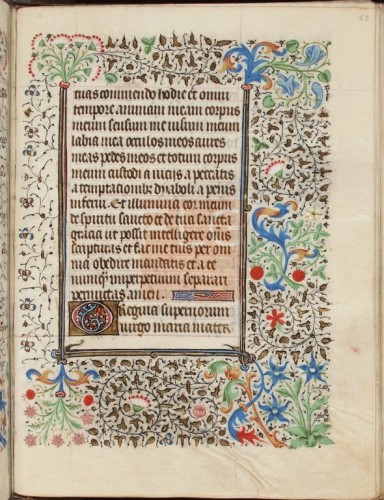 tuas commendo hodie et omni
tempore. animam meam corpus
meum sensum meum visum meum
labia mea oculos meos aures
meas pedes meos et totum corpus
meum custodi a vicijs a peccatis
a temptacionibz dyaboli a penis
inferni. Et illumina cor meum
de spiritu sancto et de tua sancta
gracia ut possit intelligere omnes
scripturas et fac me tuis per om
nia obedire mandatis et a te
nunqz in perpetuum separari
permittas amen.
O Regina superiorum
virgo maria mater